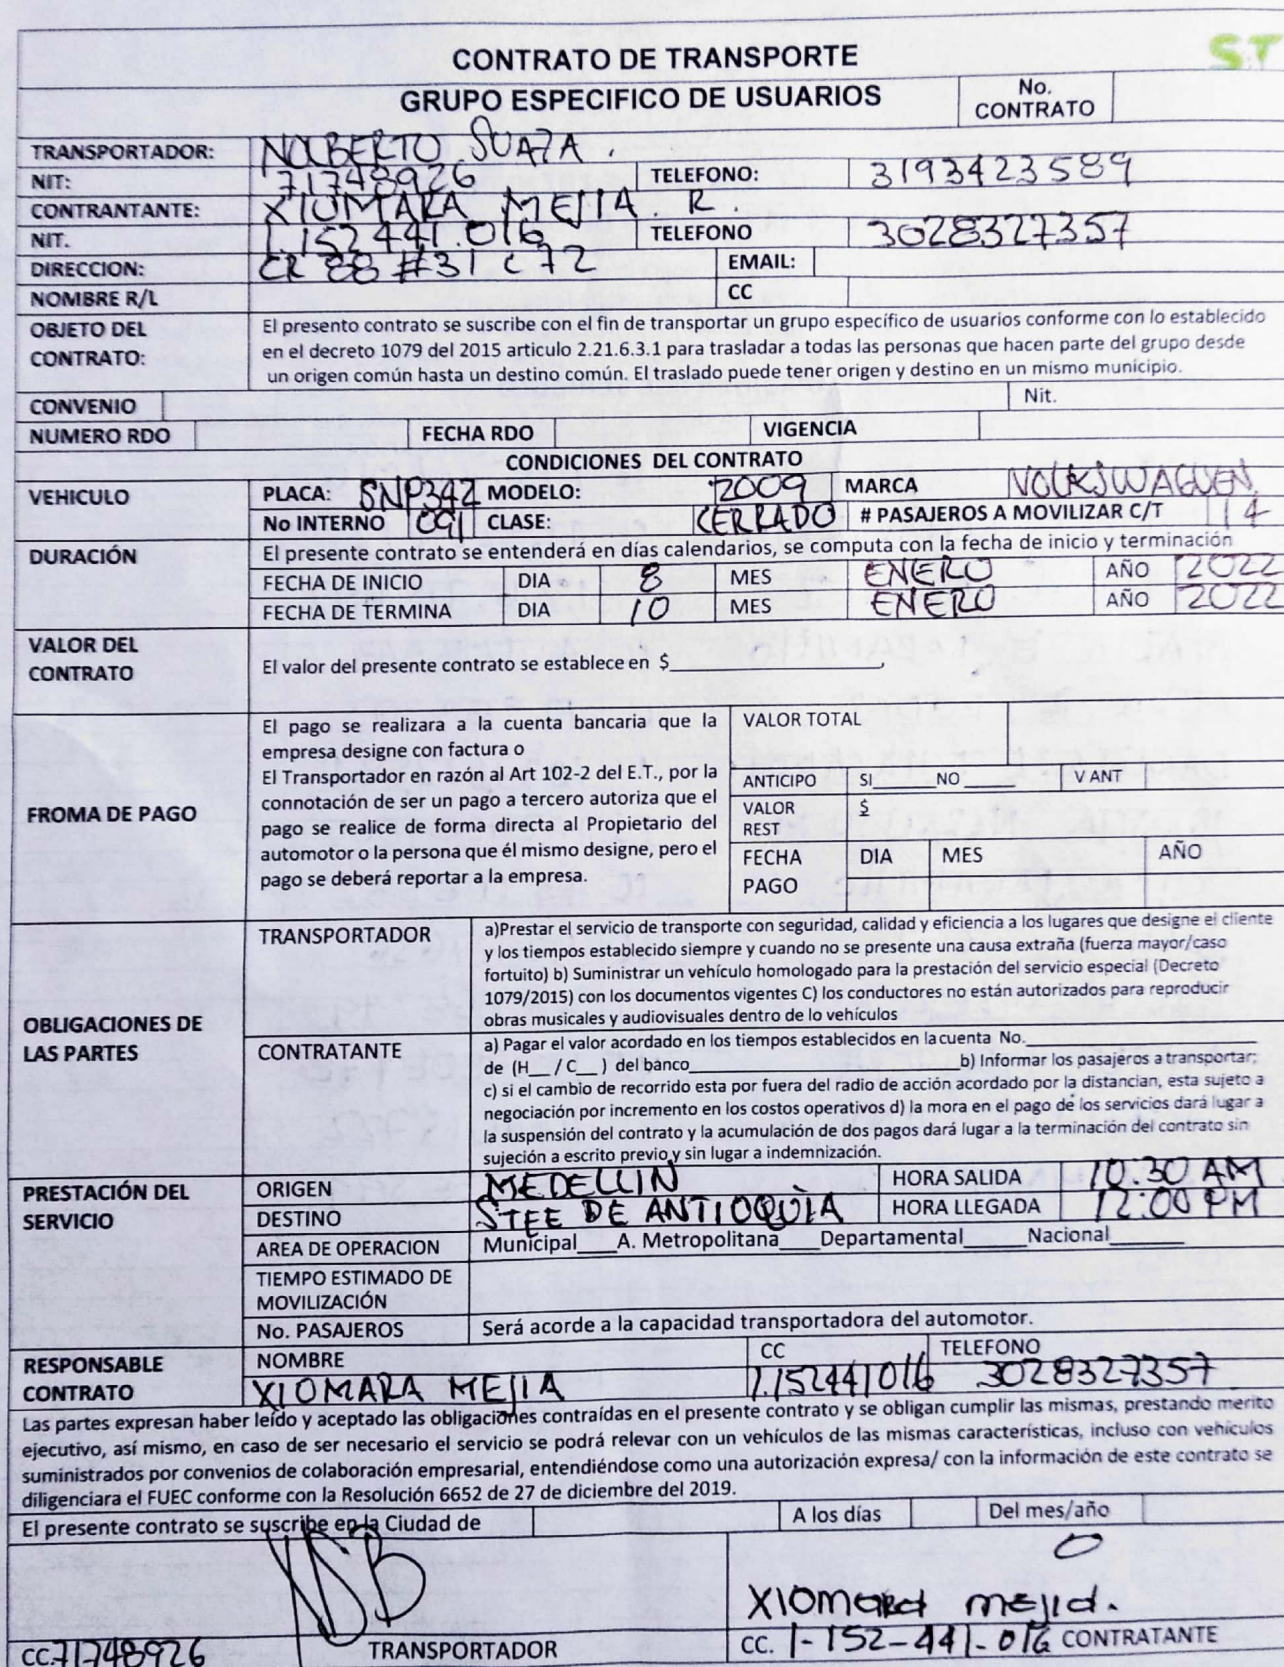 CONTRATO DE TRANSPORTE ST
GRUPO ESPECIFICO DE USUARIOS No. CONTRATO
TRANSPORTADOR: NOLBERTO SUAZA.
NIT: 71748926 TELEFONO: 3193423589
CONTRANTANTE: XIOMARA MEJIA. R.
NIT. 1.152441.016 TELEFONO 3028327357
DIRECCION: CR 88 #31 C 72 EMAIL:
NOMBRE R/L CC
OBJETO DEL CONTRATO: El presento contrato se suscribe con el fin de transportar un grupo específico de usuarios conforme con lo establecido
en el decreto 1079 del 2015 articulo 2.21.6.3.1 para trasladar a todas las personas que hacen parte del grupo desde
un origen común hasta un destino común. El traslado puede tener origen y destino en un mismo municipio.
CONVENIO Nit.
NUMERO RDO FECHA RDO VIGENCIA
CONDICIONES DEL CONTRATO
VEHICULO PLACA: SNP342 MODELO: 2009 MARCA VOLKSWAGUEN
No INTERNO 091 CLASE: CERRADO # PASAJEROS A MOVILIZAR C/T 14
DURACIÓN El presente contrato se entenderá en días calendarios, se computa con la fecha de inicio y terminación
FECHA DE INICIO DIA 8 MES ENERO AÑO 2022
FECHA DE TERMINA DIA 10 MES ENERO AÑO 2022
VALOR DEL CONTRATO El valor del presente contrato se establece en $
FROMA DE PAGO
El pago se realizara a la cuenta bancaria que la
empresa designe con factura o
El Transportador en razón al Art 102-2 del E.T., por la
connotación de ser un pago a tercero autoriza que el
pago se realice de forma directa al Propietario del
automotor o la persona que él mismo designe, pero el
pago se deberá reportar a la empresa.
VALOR TOTAL
ANTICIPO SI______NO ______ V ANT
VALOR REST $
FECHA PAGO DIA MES AÑO
OBLIGACIONES DE LAS PARTES
TRANSPORTADOR a)Prestar el servicio de transporte con seguridad, calidad y eficiencia a los lugares que designe el cliente
y los tiempos establecido siempre y cuando no se presente una causa extraña (fuerza mayor/caso
fortuito) b) Suministrar un vehículo homologado para la prestación del servicio especial (Decreto
1079/2015) con los documentos vigentes C) los conductores no están autorizados para reproducir
obras musicales y audiovisuales dentro de lo vehículos
CONTRATANTE a) Pagar el valor acordado en los tiempos establecidos en la cuenta No.
de (H__ / C__ ) del banco______________ b) Informar los pasajeros a transportar;
c) si el cambio de recorrido esta por fuera del radio de acción acordado por la distancian, esta sujeto a
negociación por incremento en los costos operativos d) la mora en el pago de los servicios dará lugar a
la suspensión del contrato y la acumulación de dos pagos dará lugar a la terminación del contrato sin
sujeción a escrito previo y sin lugar a indemnización.
PRESTACIÓN DEL SERVICIO
ORIGEN MEDELLIN HORA SALIDA 10:30 AM
DESTINO STFE DE ANTIOQUIA HORA LLEGADA 12:00 PM
AREA DE OPERACION Municipal____A. Metropolitana____Departamental______Nacional______
TIEMPO ESTIMADO DE MOVILIZACIÓN
No. PASAJEROS Será acorde a la capacidad transportadora del automotor.
RESPONSABLE CONTRATO
NOMBRE CC TELEFONO
XIOMARA MEJIA 1.152441016 3028327357
Las partes expresan haber leído y aceptado las obligaciones contraídas en el presente contrato y se obligan cumplir las mismas, prestando merito
ejecutivo, así mismo, en caso de ser necesario el servicio se podrá relevar con un vehículos de las mismas características, incluso con vehículos
suministrados por convenios de colaboración empresarial, entendiéndose como una autorización expresa/ con la información de este contrato se
diligenciara el FUEC conforme con la Resolución 6652 de 27 de diciembre del 2019.
El presente contrato se suscribe en la Ciudad de A los días Del mes/año
XIOMARA MEJIA.
CC.71748926 TRANSPORTADOR CC. 1-152-441-016 CONTRATANTE